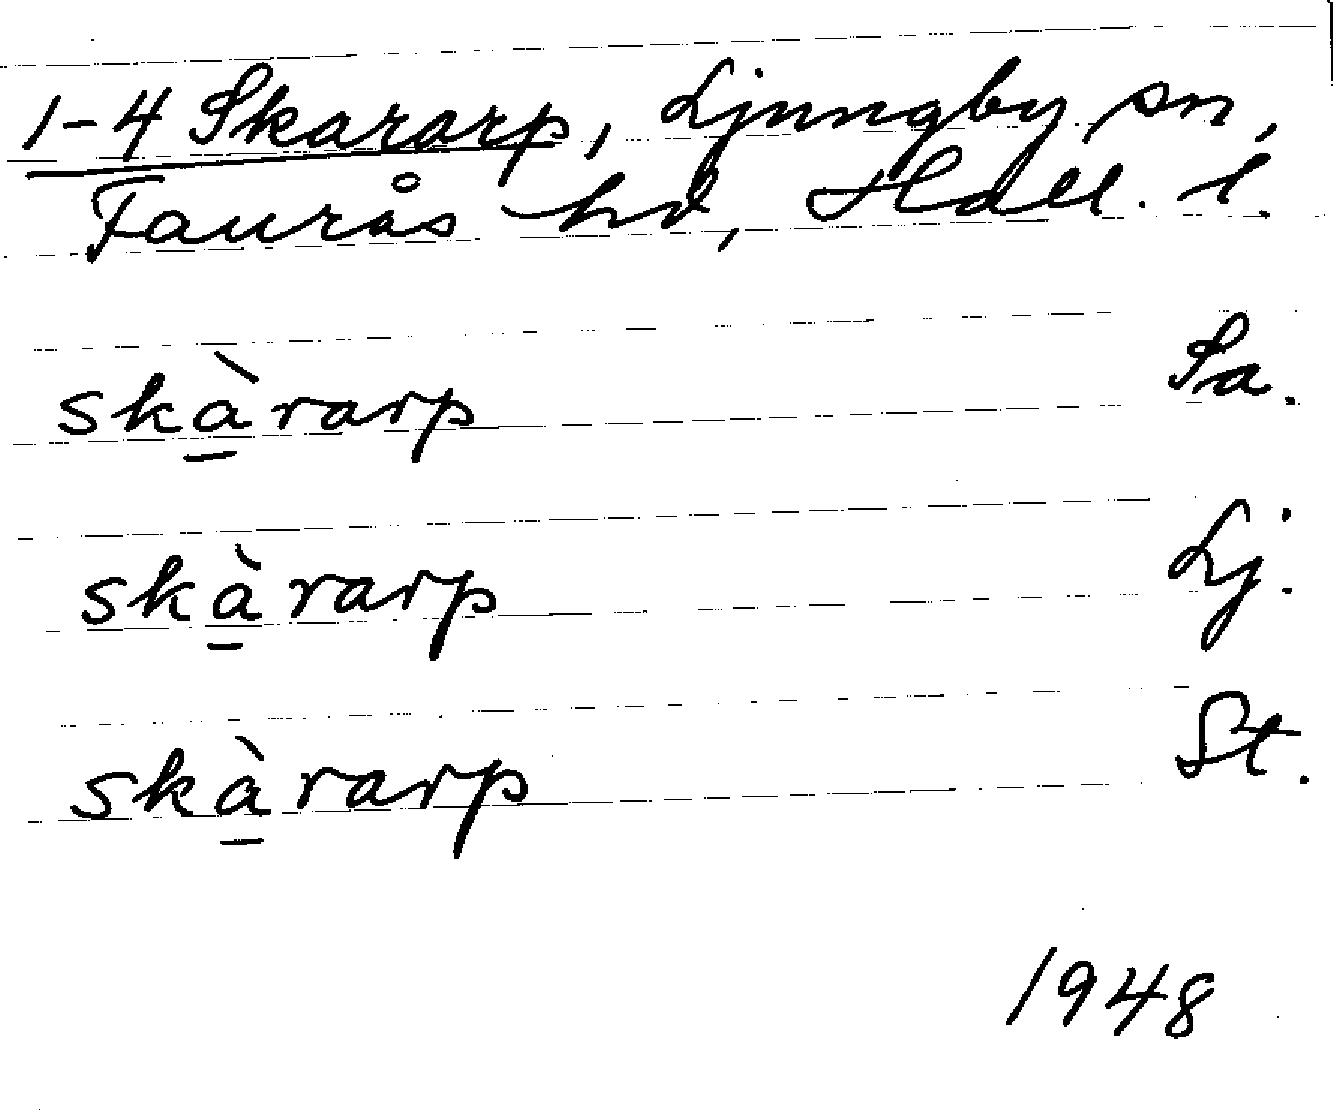 1-4 Skararp, Ljungby sn,
Faurås hd, Hall. l.
skà̱rarp Sa.
skà̱rarp Lj.
skà̱rarp St.
1948